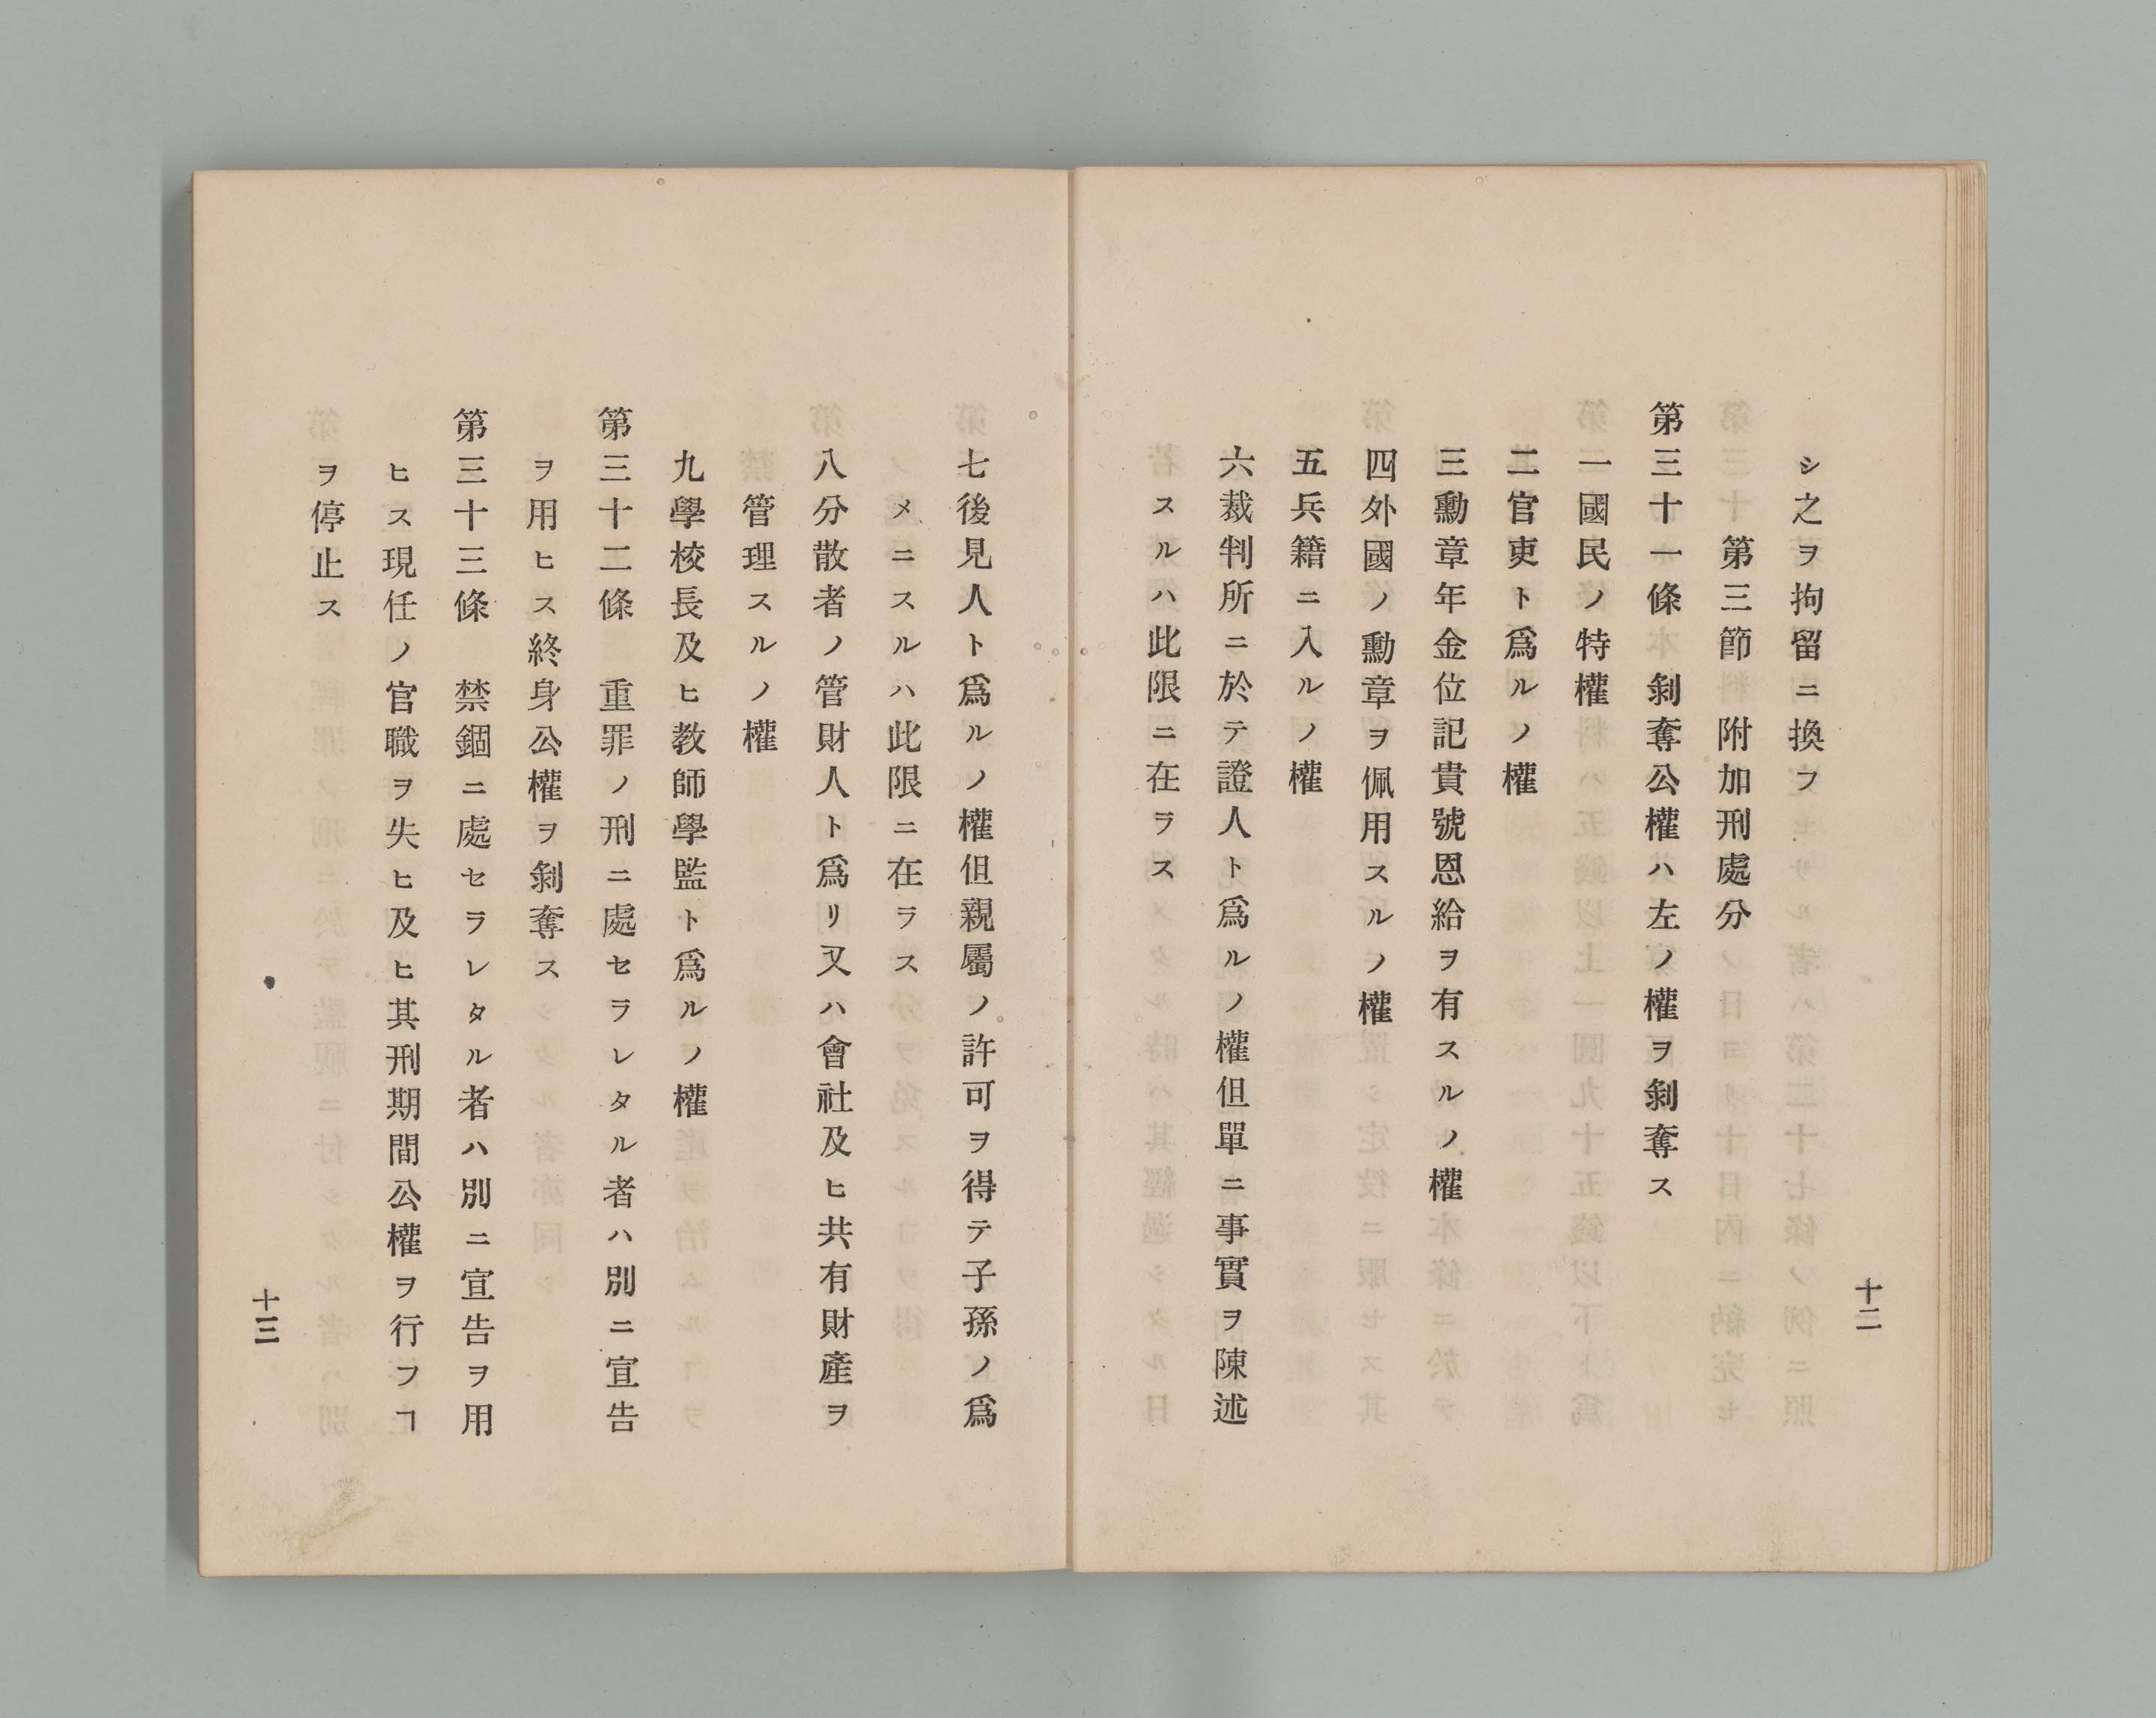 シ之ヲ拘留ニ換フ
第三節 附加刑處分
第三十一條 剝奪公權ハ左ノ權ヲ剝奪ス
一國民ノ特權
二官吏ト爲ルノ權
三勳章年金位記貴號恩給ヲ有スルノ權
四外國ノ勳章ヲ佩用スルノ權
五兵籍ニ入ルノ權
六裁判所ニ於テ證人ト爲ルノ權但單ニ事實ヲ陳述
スルハ此限ニ在ラス
十二
七後見人ト爲ルノ權但親屬ノ許可ヲ得テ子孫ノ爲
メニスルハ此限ニ在ラス
八分散者ノ管財人ト爲リ又ハ會社及ヒ共有財產ヲ
管理スルノ權
九學校長及ヒ教師學監ト爲ルノ權
第三十二條 重罪ノ刑ニ處セラレタル者ハ別ニ宣告
ヲ用ヒス終身公權ヲ剝奪ス
第三十三條 禁錮ニ處セラレタル者ハ別ニ宣告ヲ用
ヒス現任ノ官職ヲ失ヒ及ヒ其刑期間公權ヲ行フヿ
ヲ停止ス
十三